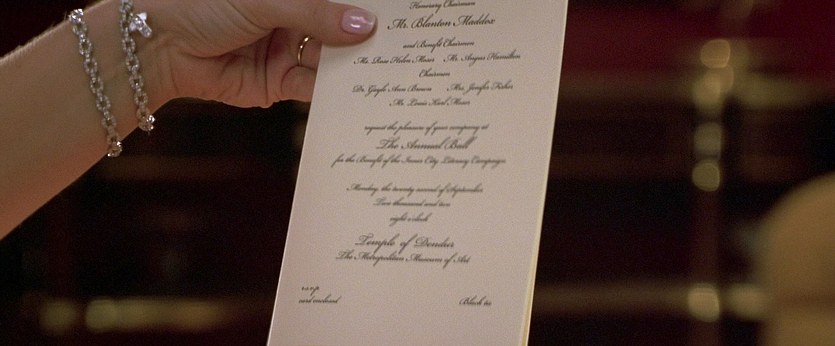 Honorary Chairman
Mr. Blanton Maddox
and Benefit Chairmen
Ms. Rose Helen Moser Mr. Angus Hamilton
Chairmen
Dr. Gayle Ann Brown Mrs. Jenifer Fisher
Mr. Louis Karl Moser
request the pleasure of your company at
The Annual Ball
for the Benefit of the Inner City Literacy Campaign
Monday, the twenty second of September
Two thousand and two
eight o'clock
Temple of Dendur
The Metropolitan Museum of Art
r.s.v.p.
card enclosed Black tie